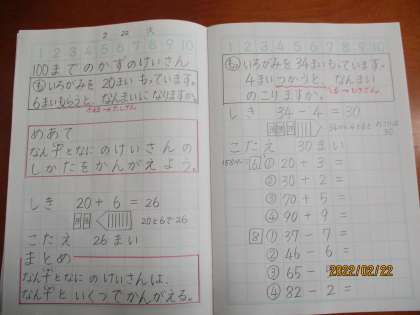 2 22 火
1 2 3 4 5 6 7 8 9 10
100までのかずのけいさん
も いろがみを 20まい もっています。
6まいもらうと、なんまいになりますか。
めあて
なん十となにのけいさんの
しかたをかんがえよう。
しき 20 + 6 = 26
20と6で26
こたえ 26まい
まとめ
なん十となにのけいさんは、
なん十と いくつでかんがえる。
1 2 3 4 5 6 7 8 9 10
も いろがみを 34まいもっています。
4まいつかうと、なんまい
のこりますか。
しき 34 - 4 = 30
こたえ 30まい
6 ① 20 + 3 =
② 30 + 2 =
③ 70 + 5 =
④ 90 + 9 =
8 ① 37 - 7 =
② 46 - 6 =
③ 65 -
④ 82 - 2 =
2022/02/22